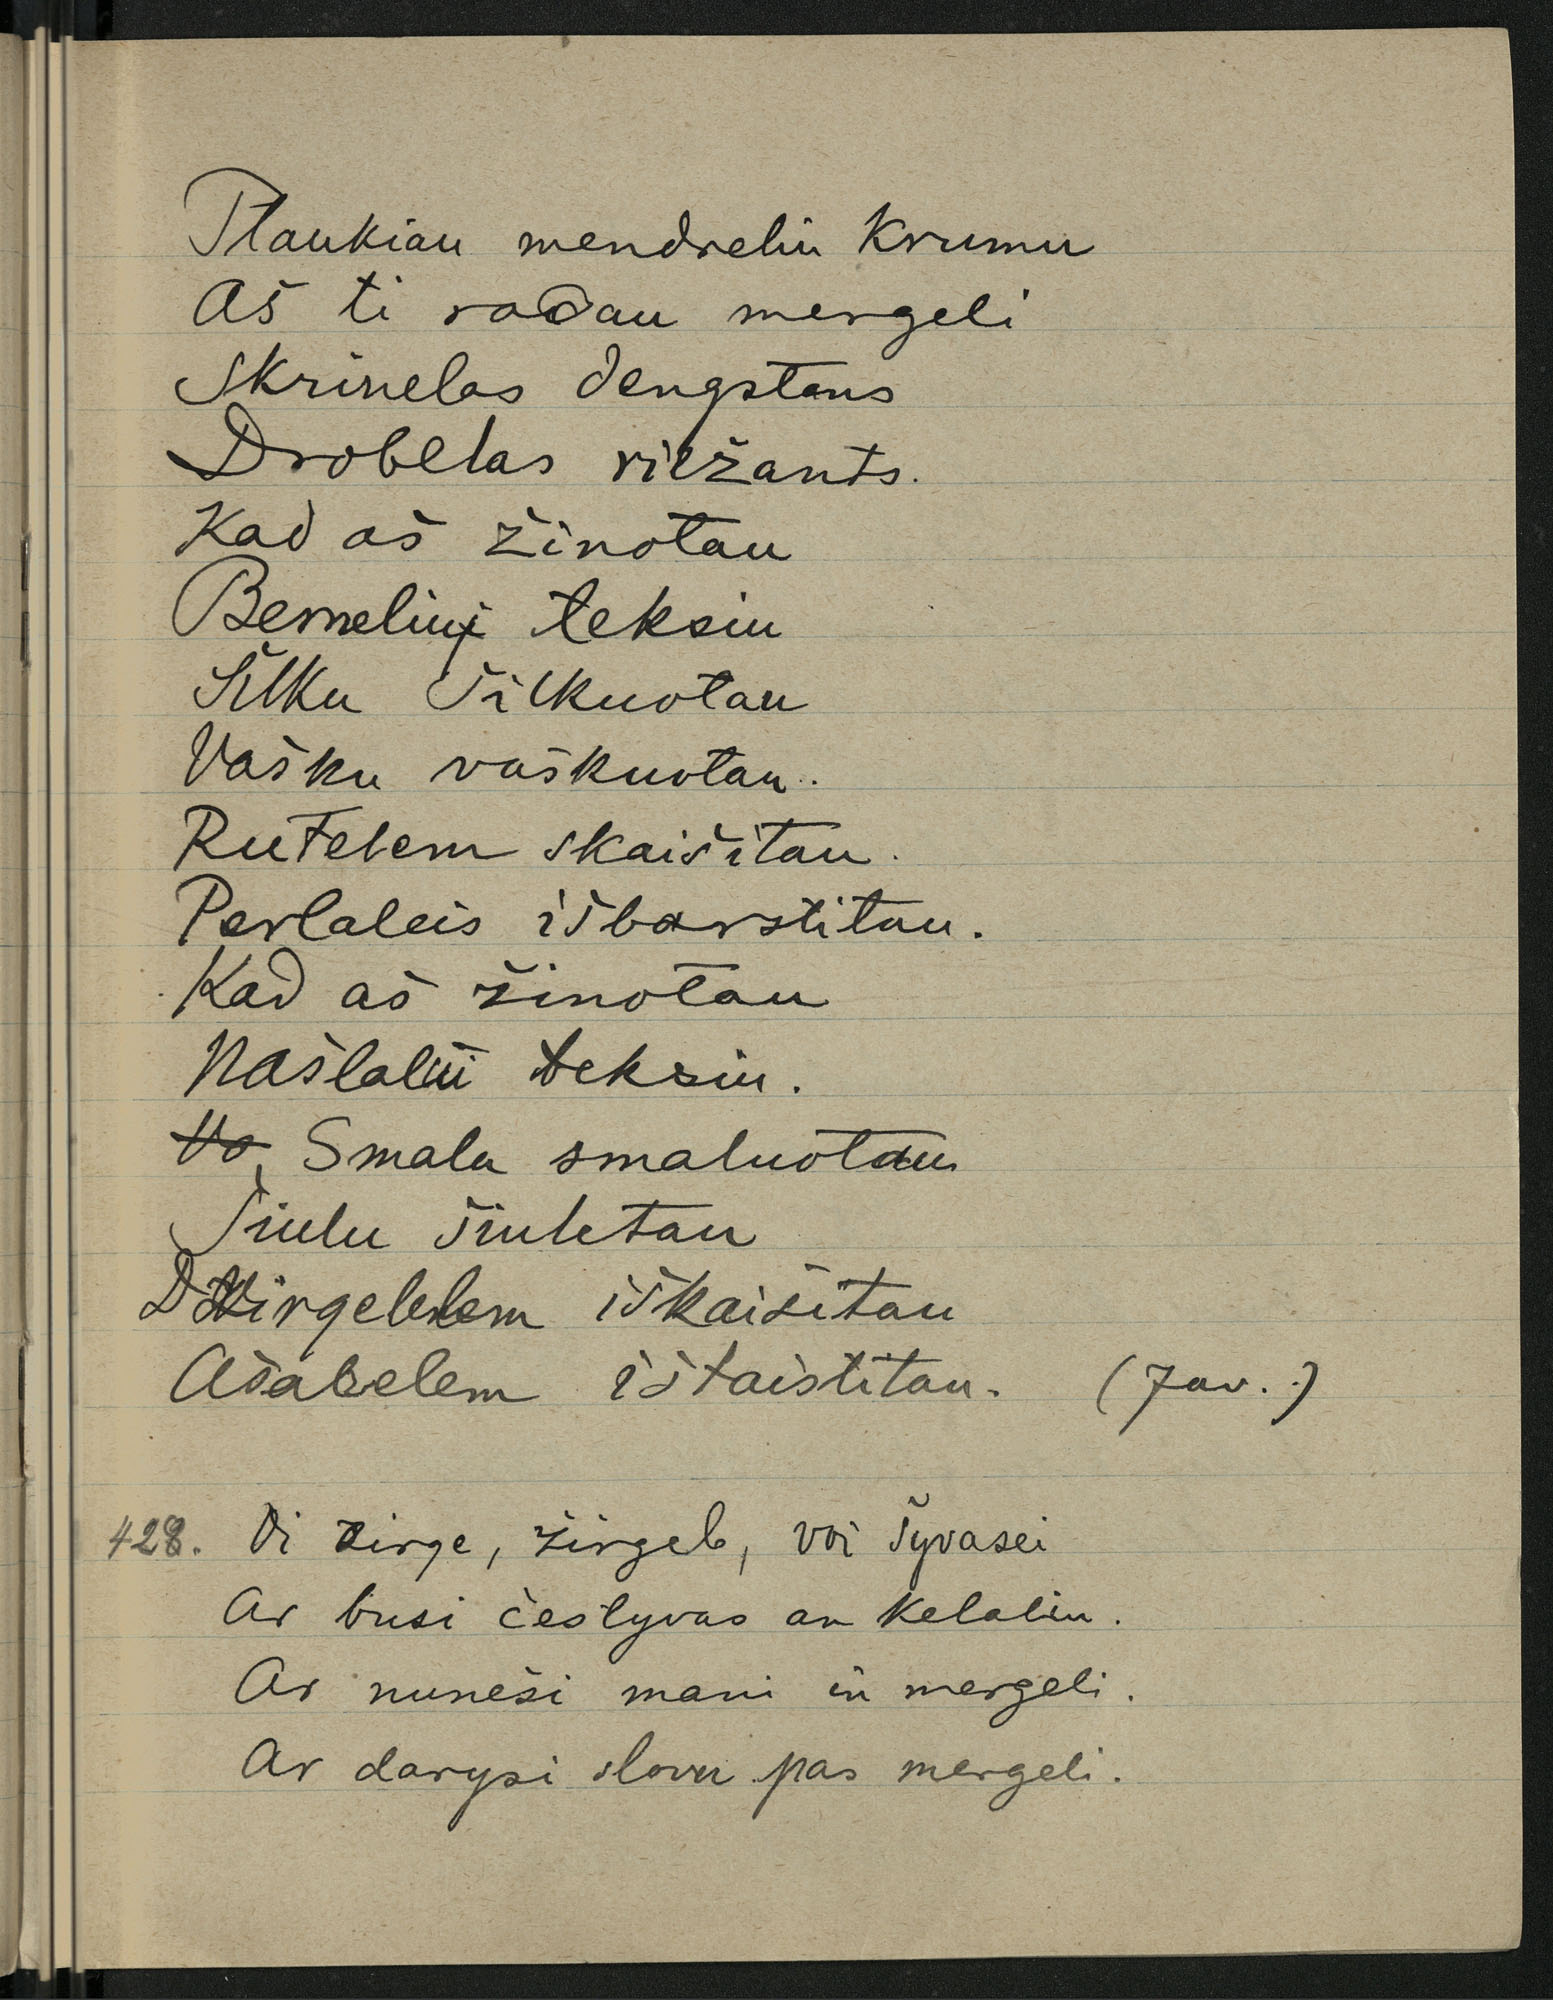 Plaukiau mendreliu Krumu
Aš ti radau mergeli
Skrinelas dengstans
Drobelas riežants.
Kad aš žinotau
Berneliuj teksiu
Šilku šilkuotau
Vašku vaškuotau.
Rutelem skaišitau.
Perlaleis išbarstitau.
Kad aš žinotau
Našlaliui teksiu.
Smala smaluotau
Šiulu šiuletau
Dirgelelem iškaišitau
Ašakelem ištaistitau. (Jav.)
428. Oi žirge, žirgel, voi šyvasei
Ar busi čestyvas an kelaliu.
Ar nuneši mani in mergeli.
Ar darysi slovu pas mergeli.